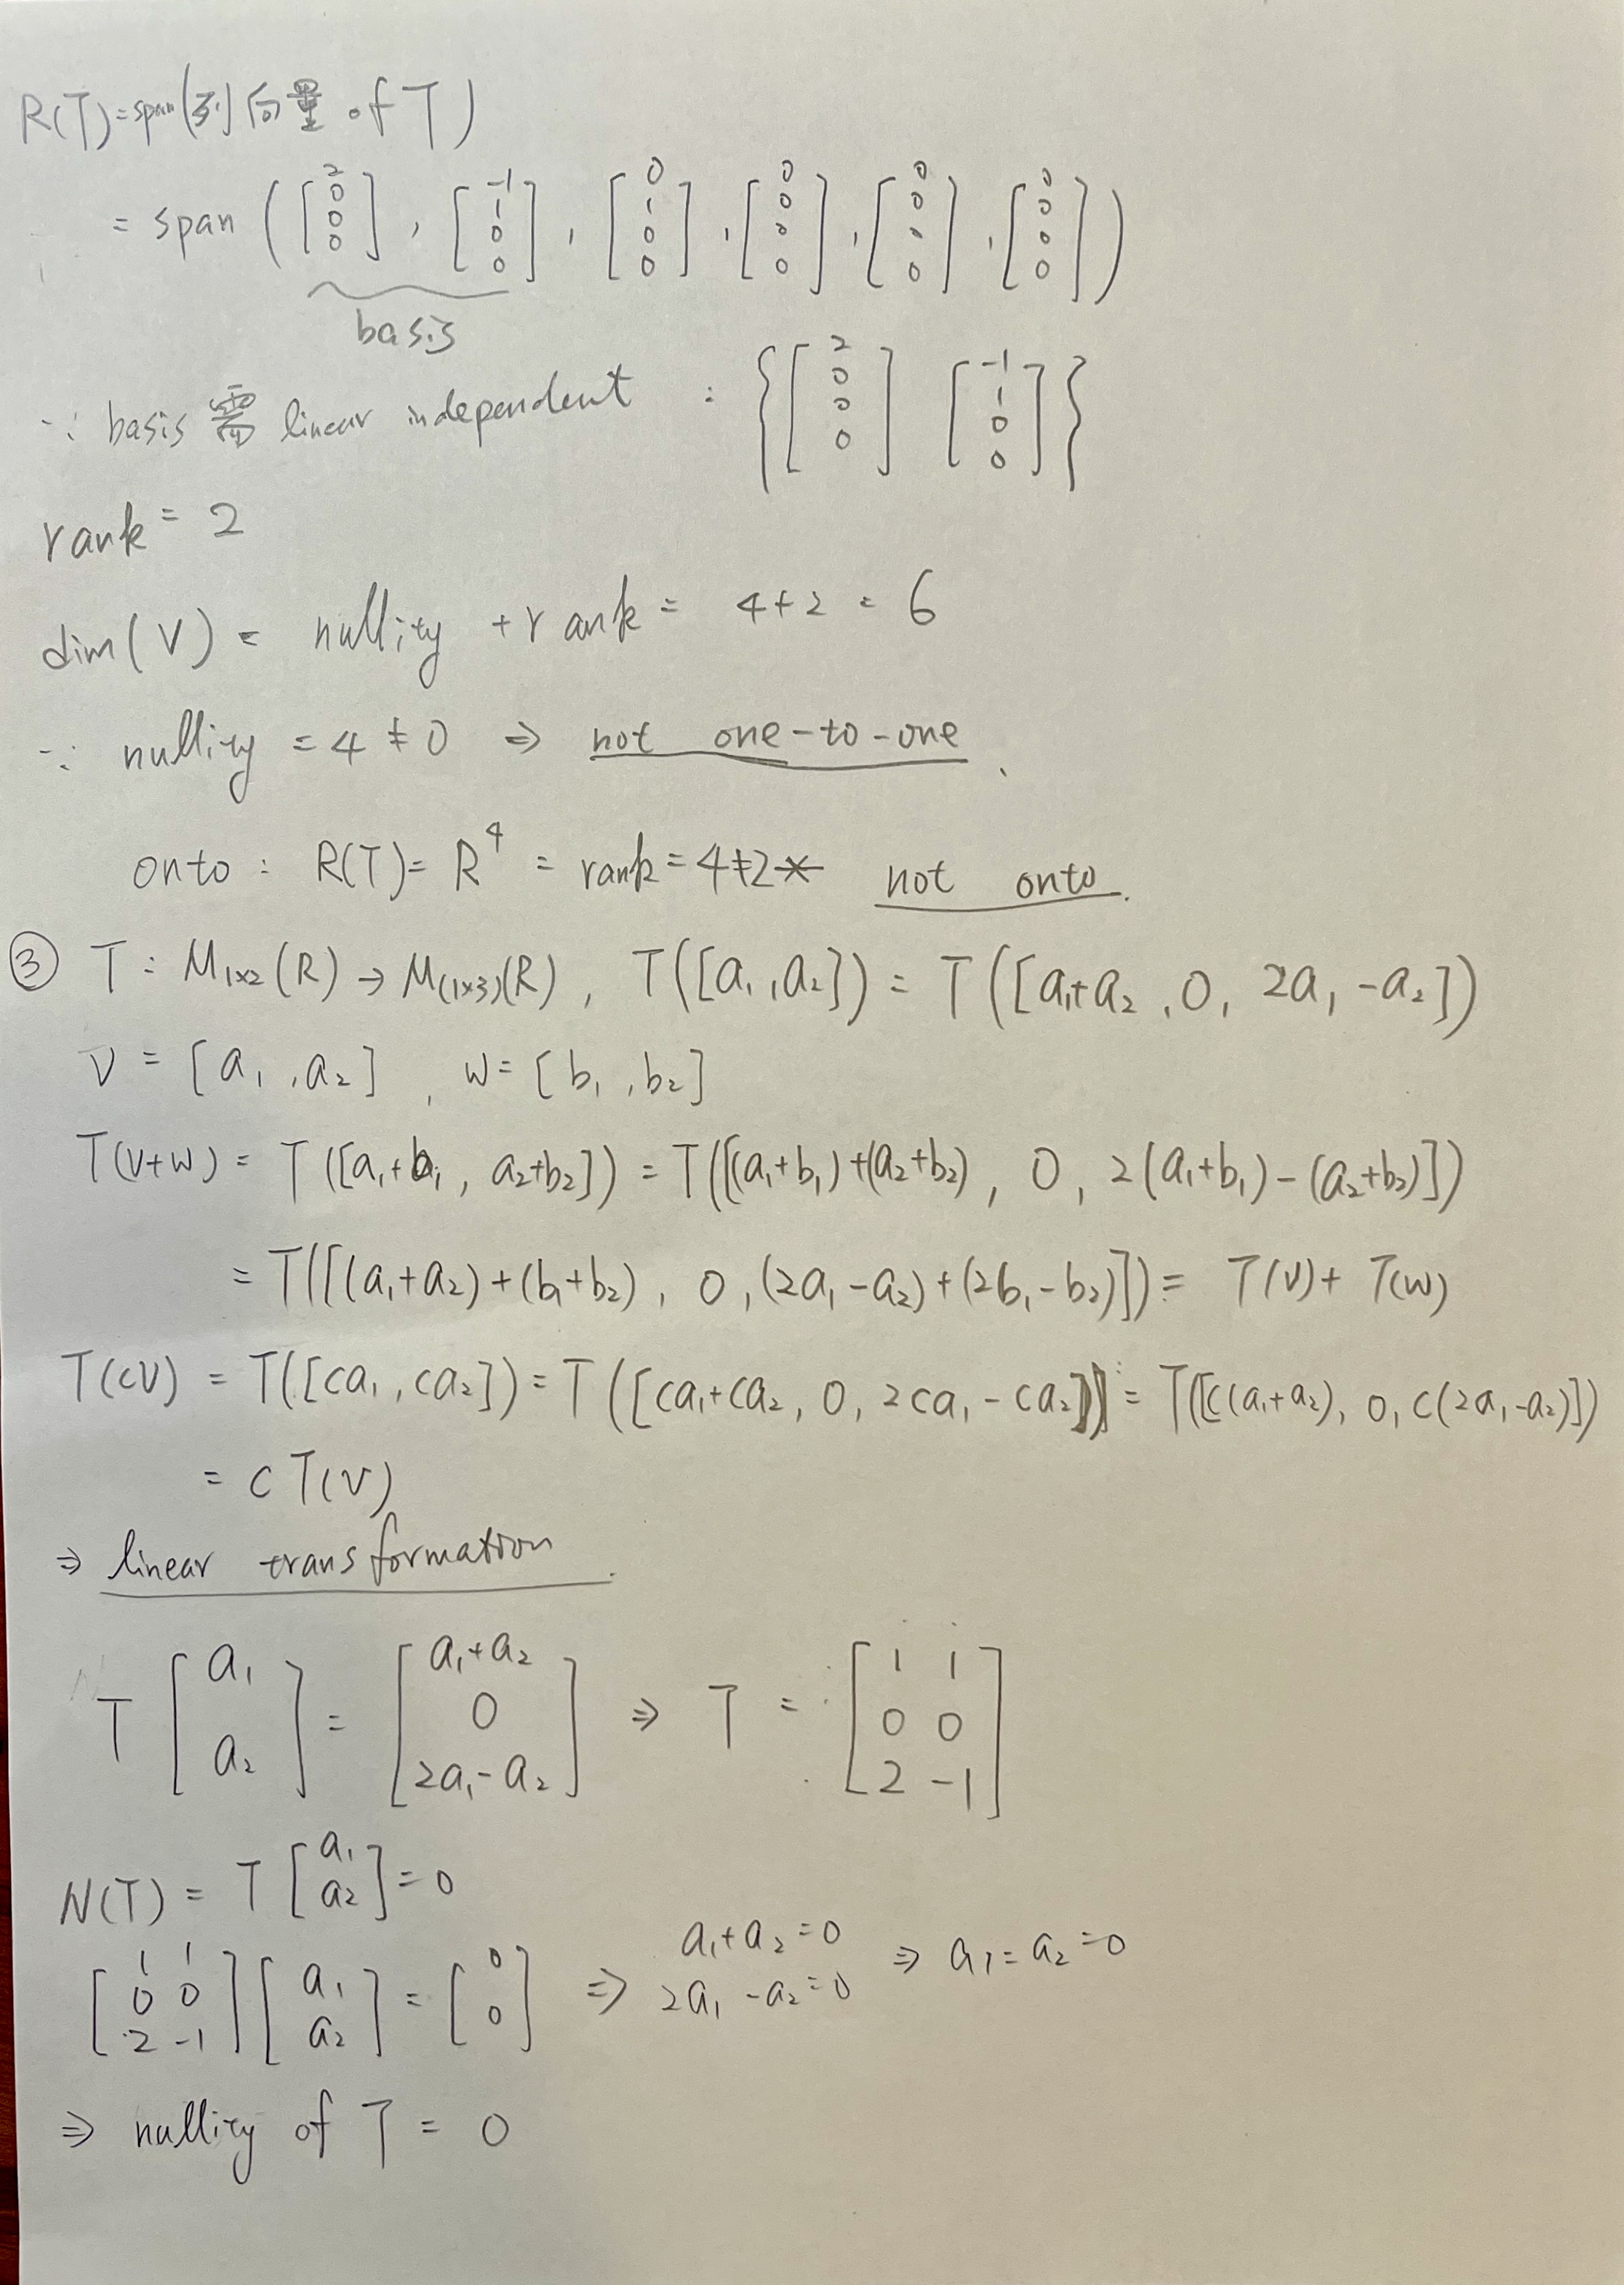 R(T)=span(列向量 of T)
= span ( [2 0 0 0], [-1 1 0 0], [0 1 0 0], [0 0 0 0], [0 0 0 0], [0 0 0 0] )
basis
∵ basis 需 linear independent : { [2 0 0 0] [-1 1 0 0] }
rank = 2
dim(V) = nullity + rank = 4+2 = 6
∵ nullity = 4 ≠ 0 ⇒ not one-to-one.
onto : R(T)= R⁴ = rank = 4≠2 not onto.
③ T : M₁ₓ₂(R) → M₍₁ₓ₃₎(R), T([a₁,a₂]) = T([a₁+a₂, 0, 2a₁-a₂])
V = [a₁,a₂], W = [b₁,b₂]
T(V+W) = T([a₁+b₁, a₂+b₂]) = T([(a₁+b₁)+(a₂+b₂), 0, 2(a₁+b₁)-(a₂+b₂)])
= T([(a₁+a₂)+(b₁+b₂), 0, (2a₁-a₂)+(2b₁-b₂)]) = T(V)+T(W)
T(cV) = T([ca₁,ca₂]) = T([ca₁+ca₂, 0, 2ca₁-ca₂]) = T([c(a₁+a₂), 0, c(2a₁-a₂)])
= cT(V)
⇒ linear transformation.
T [a₁ a₂] = [a₁+a₂ 0 2a₁-a₂] ⇒ T = [1 1 0 0 2 -1]
N(T) = T [a₁ a₂] = 0
[1 1 0 0 2 -1] [a₁ a₂] = [0 0] ⇒ a₁+a₂=0 2a₁-a₂=0 ⇒ a₁=a₂=0
⇒ nullity of T = 0